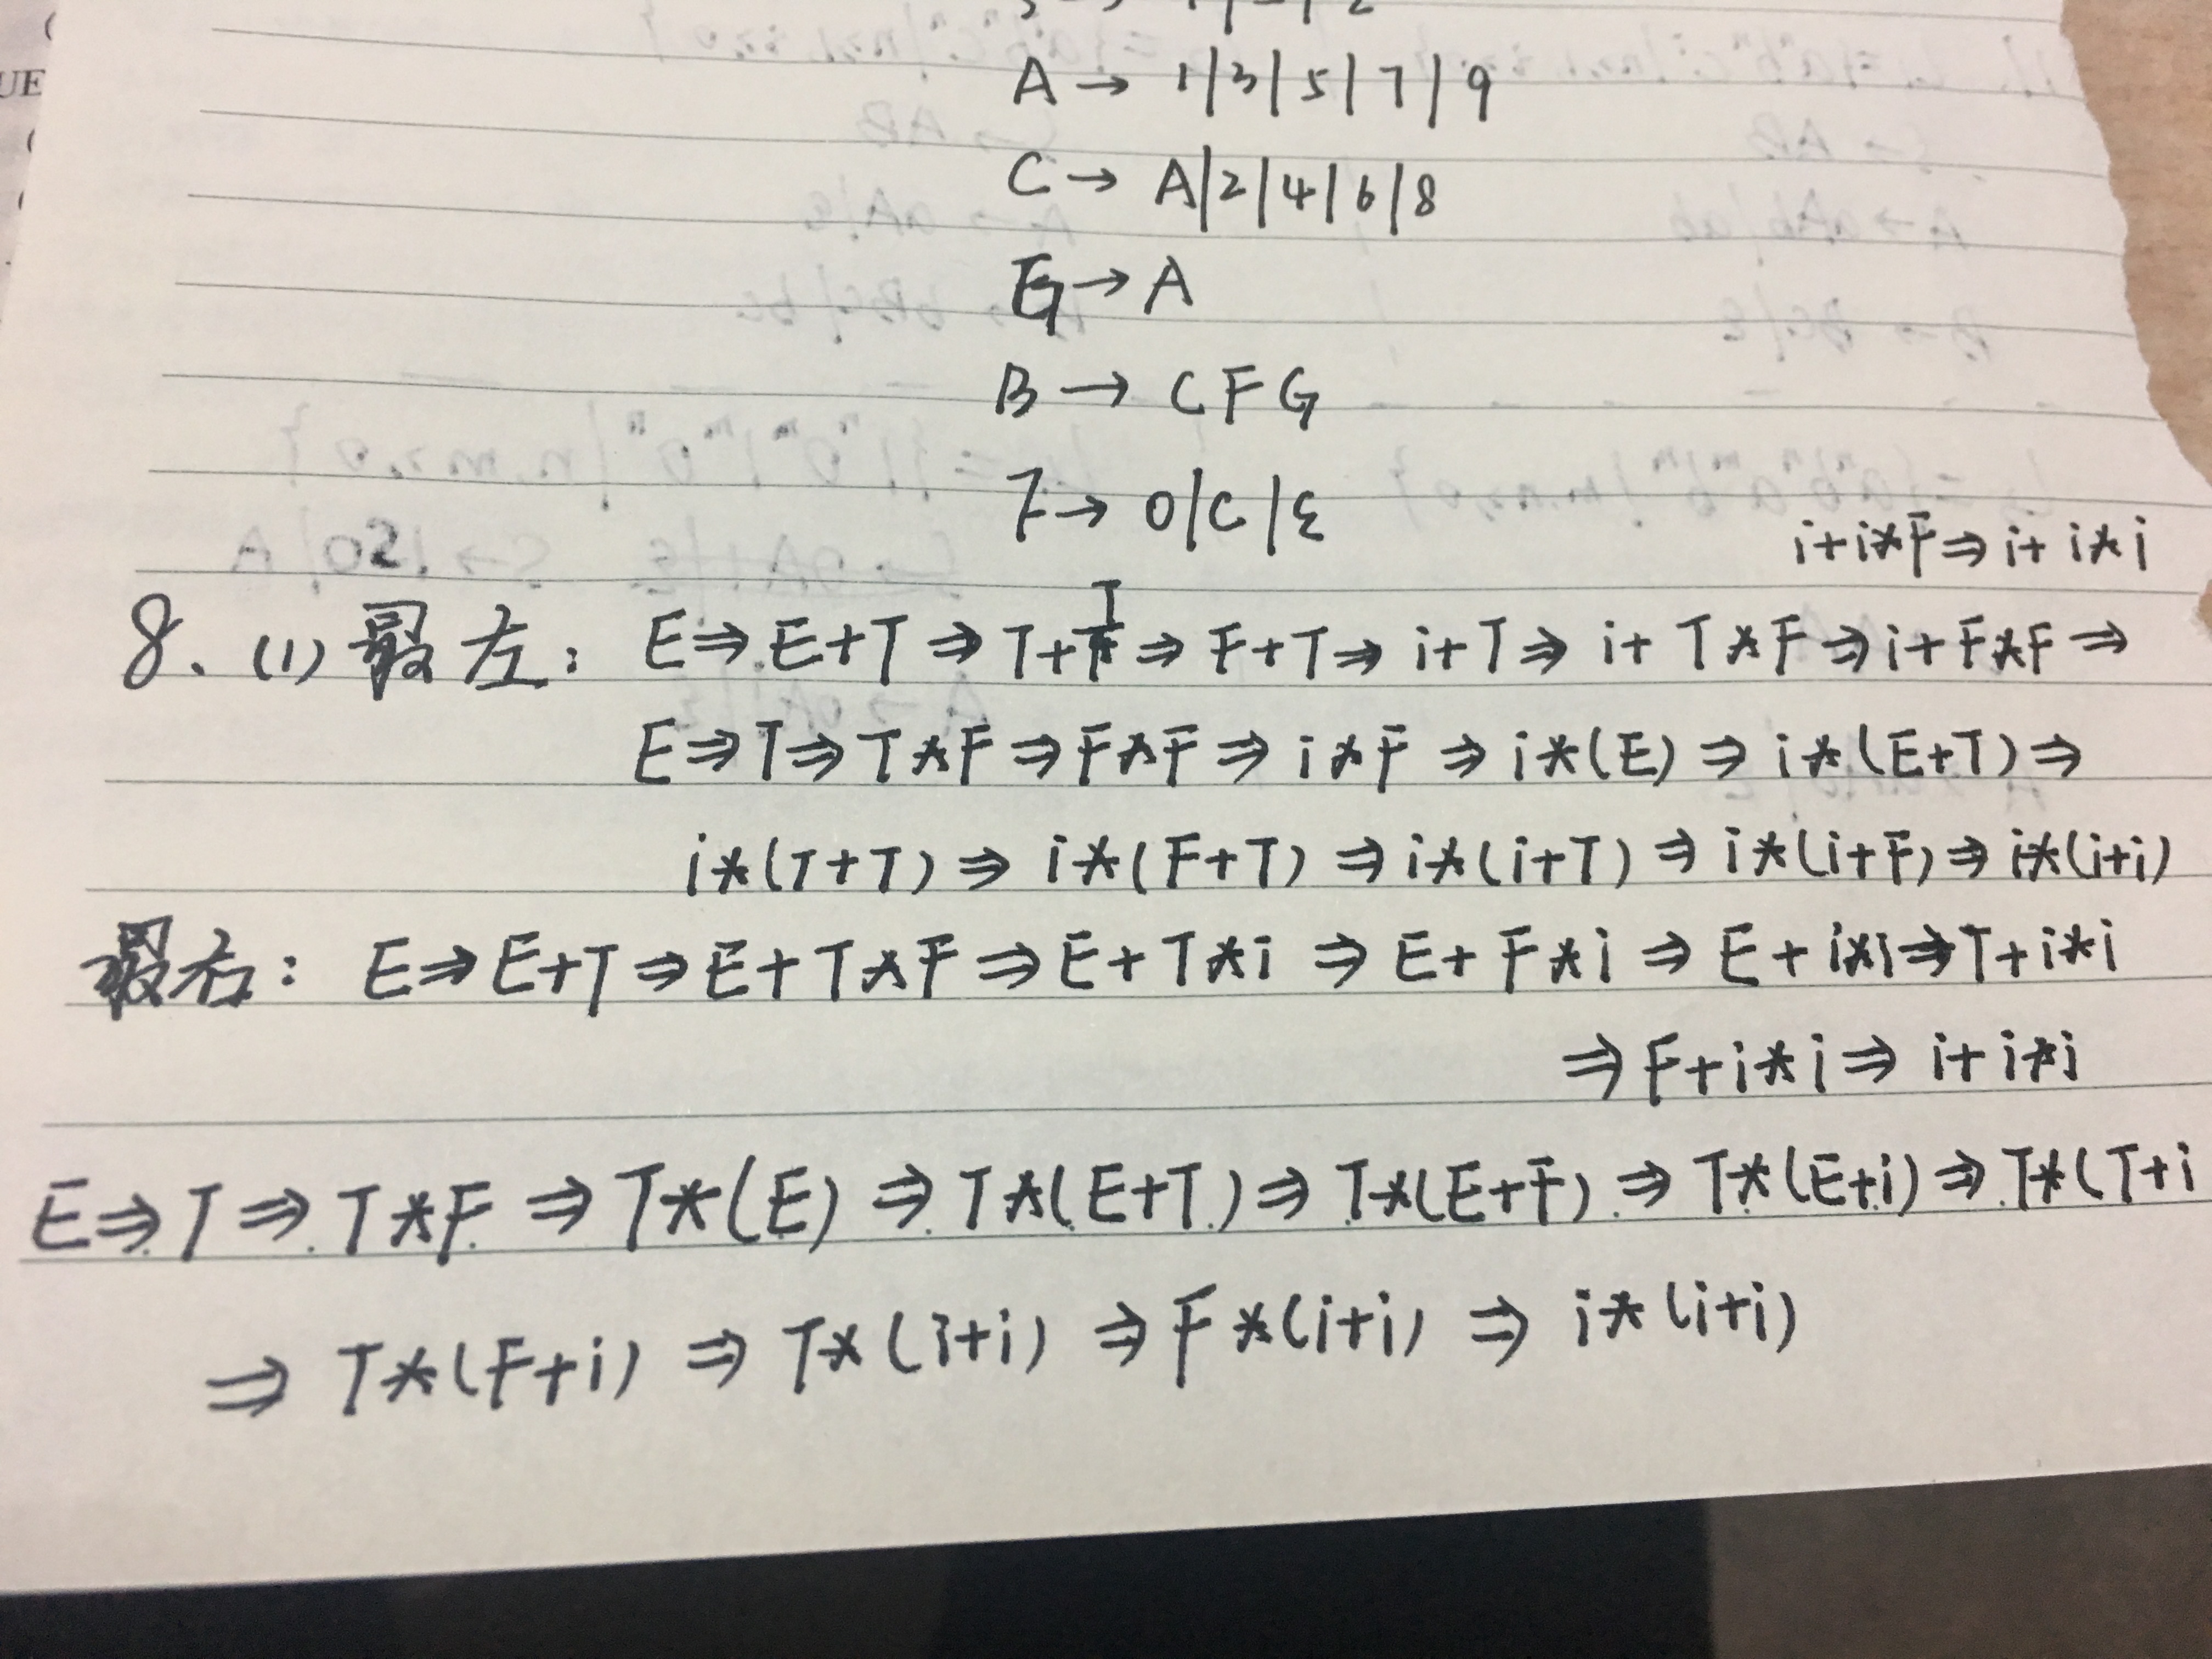 A → 1|3|5|7|9
C → A|2|4|6|8
G → A
B → C F G
F → 0|C|ε
i+i*F ⇒ i+i*i
8. (1) 最左: E ⇒ E+T ⇒ T+T ⇒ F+T ⇒ i+T ⇒ i+T*F ⇒ i+F*F ⇒
E ⇒ T ⇒ T*F ⇒ F*F ⇒ i*F ⇒ i*(E) ⇒ i*(E+T) ⇒
i*(T+T) ⇒ i*(F+T) ⇒ i*(i+T) ⇒ i*(i+F) ⇒ i*(i+i)
最右: E ⇒ E+T ⇒ E+T*F ⇒ E+T*i ⇒ E+F*i ⇒ E+i*i ⇒ T+i*i
⇒ F+i*i ⇒ i+i*i
E ⇒ T ⇒ T*F ⇒ T*(E) ⇒ T*(E+T) ⇒ T*(E+F) ⇒ T*(E+i) ⇒ T*(T+i
⇒ T*(F+i) ⇒ T*(i+i) ⇒ F*(i+i) ⇒ i*(i+i)